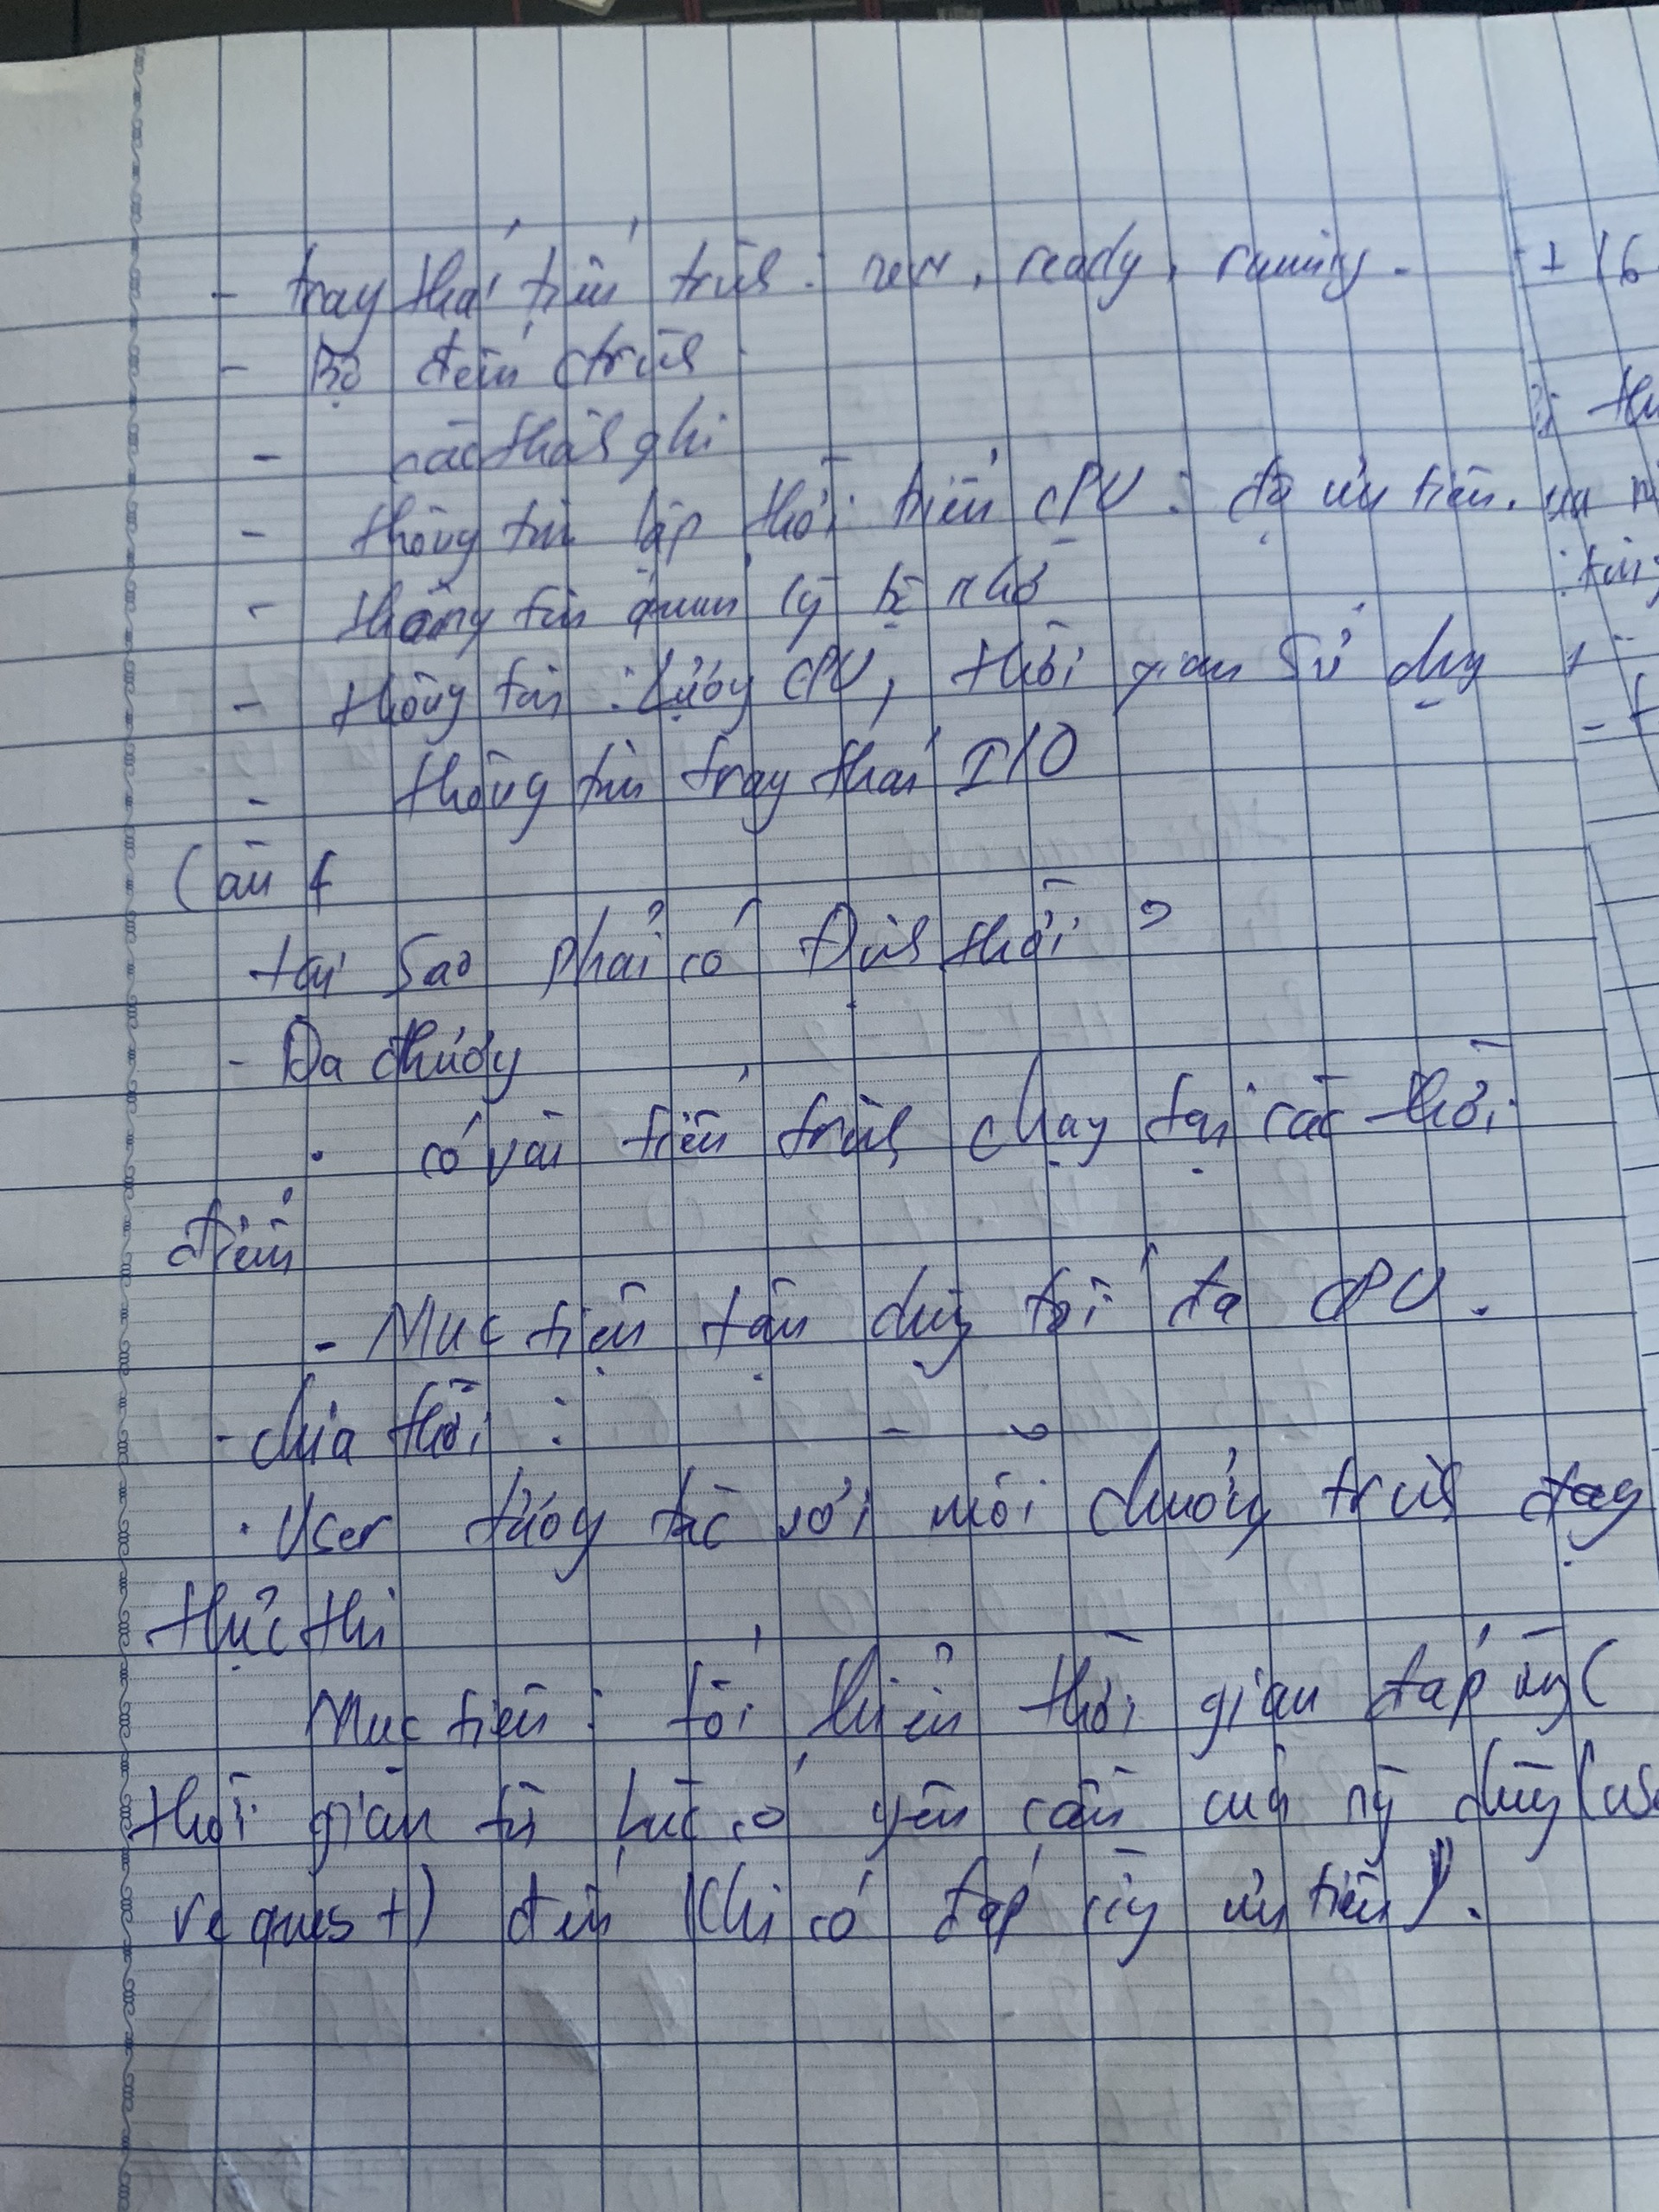 - trạng thái tiến trình : new, ready, runing.
- Bộ đếm ctrình
- các thanh ghi
- thông tin lập thời biểu CPU : độ ưu tiên.
- thông tin quản lý bộ nhớ
- thông tin : lượng CPU, thời gian sử dụng
- thông tin trạng thái I/O
Câu 4
tại sao phải có Định thời ?
- Đa chương
. có vài tiến trình chạy tại các thời
điểm
- Mục tiêu tận dụng tối đa CPU.
- chia thời :
. User tương tác với mỗi chương trình đang
thực thi
Mục tiêu : tối thiểu thời gian đáp ứng (
thời gian từ lúc có yêu cầu của ng dùng (
request) đến khi có đáp ứng ưu tiên).